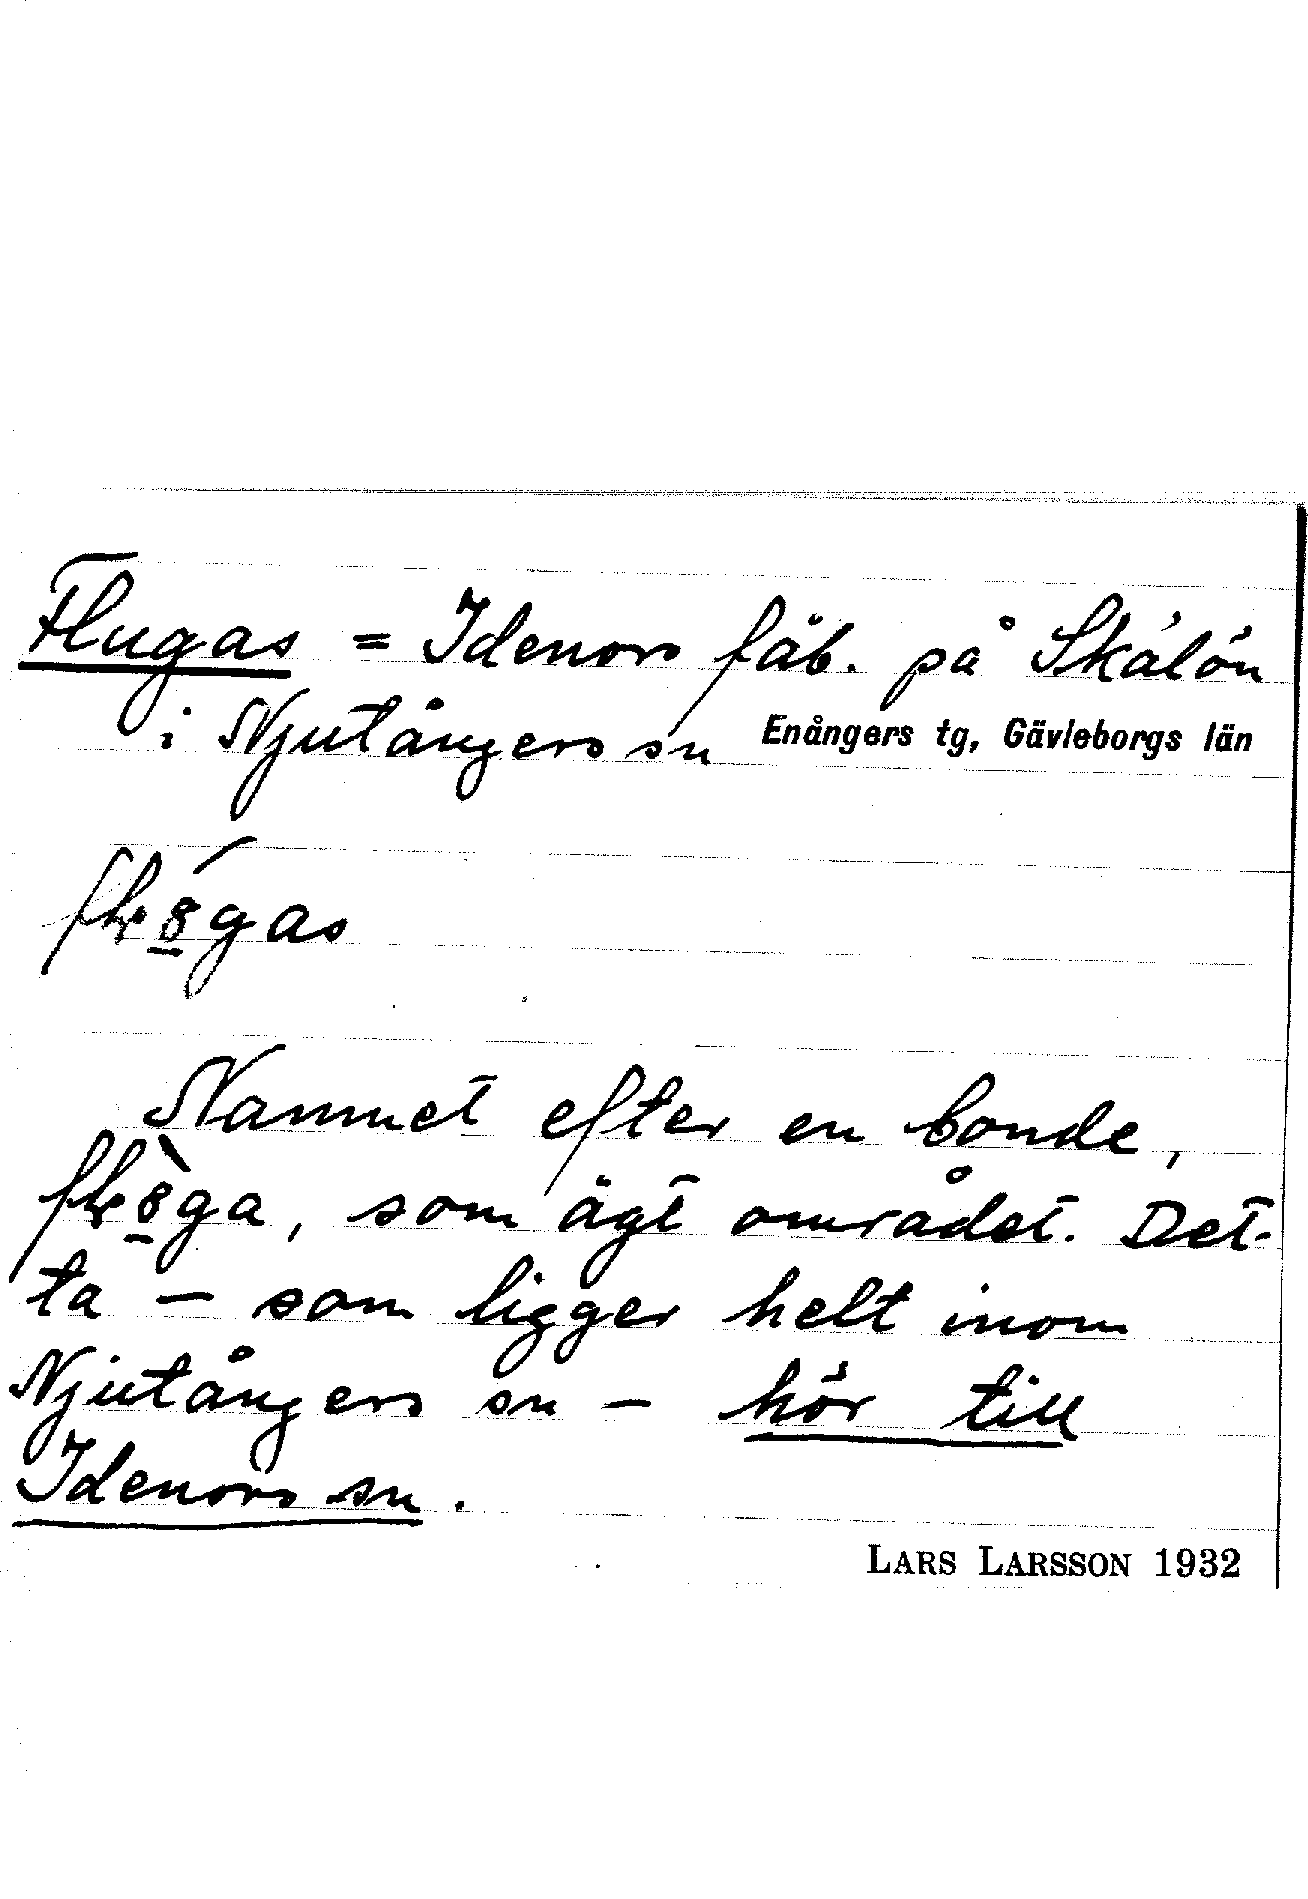 Flugas = Idenors fäb. på Skålön
i Njutångers sn Enångers tg, Gävleborgs län
Namnet efter en bonde,
som ägt området. Det-
ta – som ligger helt inom
Njutångers sn – hör till
Idenors sn.
LARS LARSSON 1932